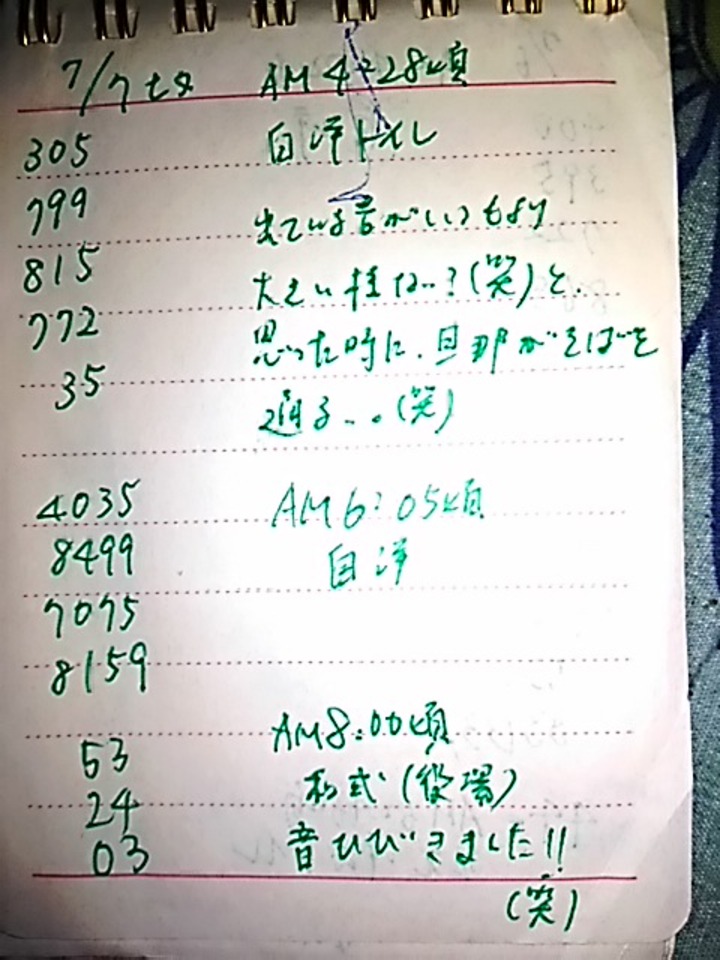 7/7 七夕 AM 4:28頃
305 自洋トイレ
799 出ている音がいつもより
815 大きい様な..?(笑)と、
772 思った時に、旦那がそばを
35 通る...(笑)
4035 AM 6:05頃
8499 自洋
7075
8159
53 AM8:00頃
24 和式(役場)
03 音ひびきました!!
(笑)